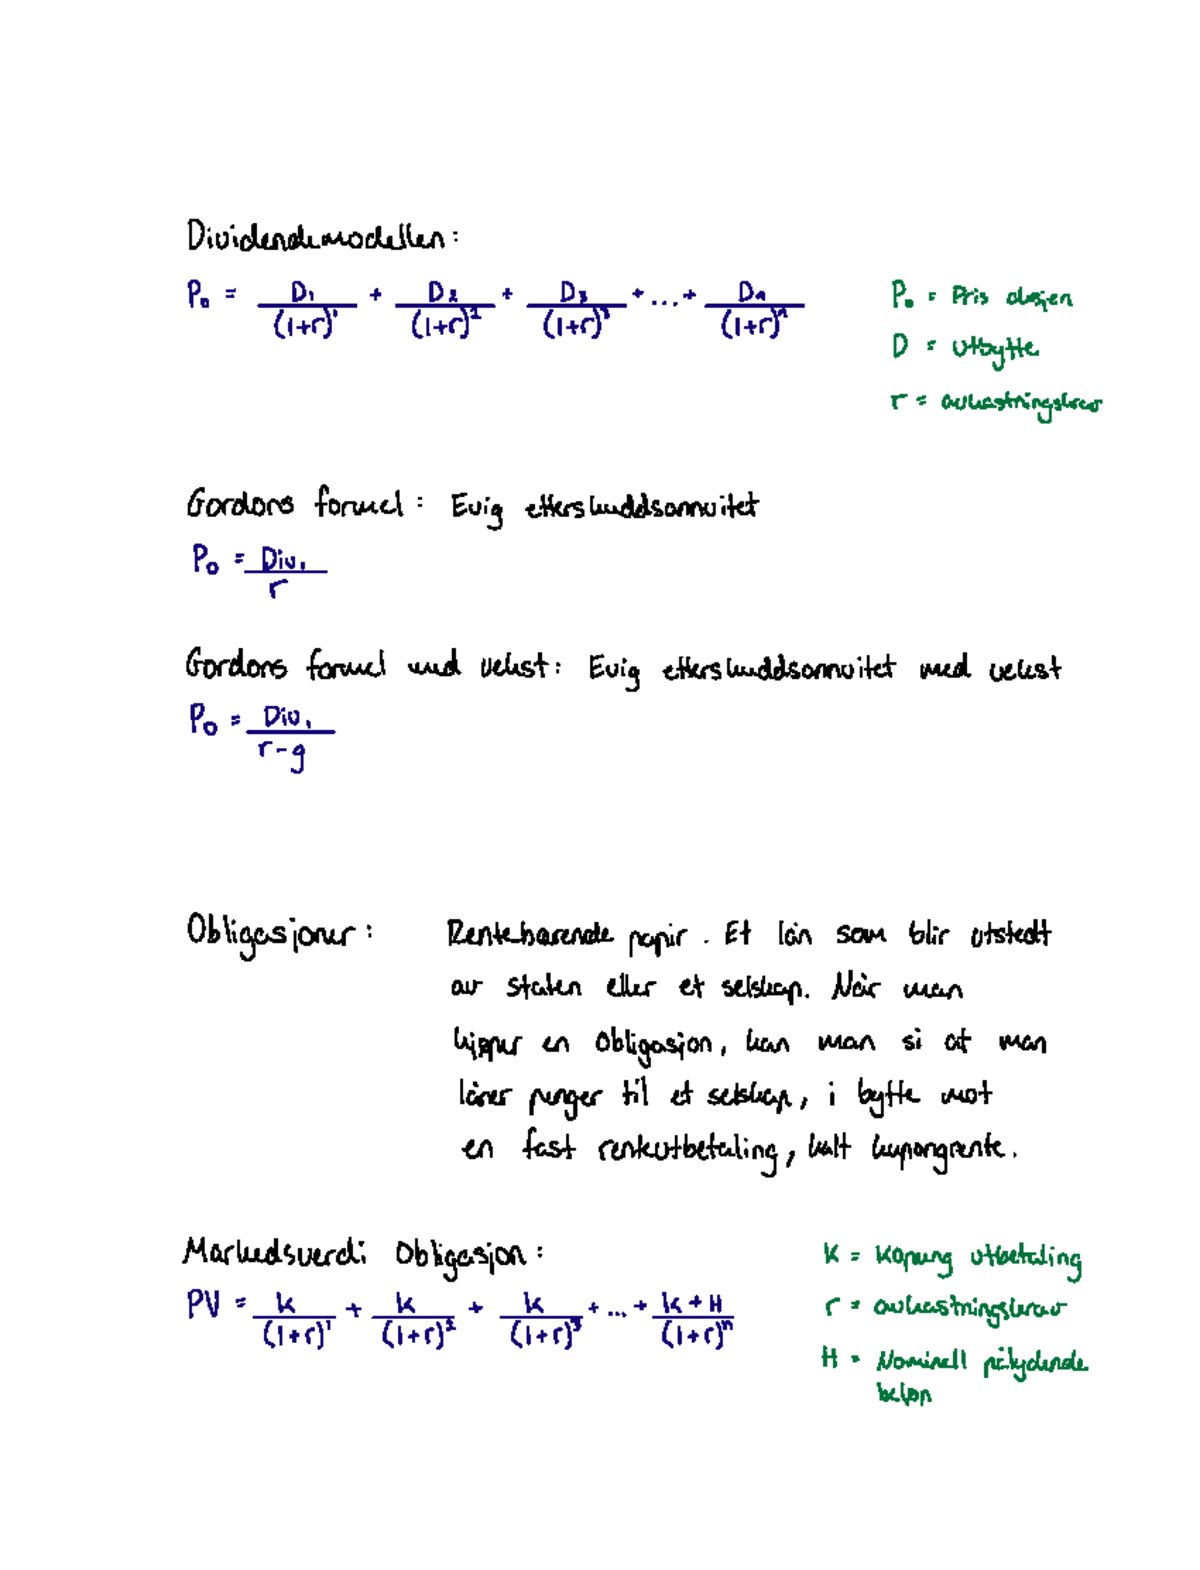 Dividendemodellen:
P₀ = D₁/(1+r)¹ + D₂/(1+r)² + D₃/(1+r)³ + ... + Dₙ/(1+r)ⁿ
P₀ = Pris aksjen
D = utbytte
r = avkastningskrav
Gordons formel: Evig etterskuddsannuitet
P₀ = Div₁/r
Gordons formel med vekst: Evig etterskuddsannuitet med vekst
P₀ = Div₁/(r-g)
Obligasjoner: Rentebærende papir. Et lån som blir utstedt
av staten eller et selskap. Når man
kjøper en obligasjon, kan man si at man
låner penger til et selskap, i bytte mot
en fast renteutbetaling, kalt kupongrente.
Markedsverdi Obligasjon:
PV = K/(1+r)¹ + K/(1+r)² + K/(1+r)³ + ... + K+H/(1+r)ⁿ
K = Kupong utbetaling
r = avkastningskrav
H = Nominell pålydende
beløp